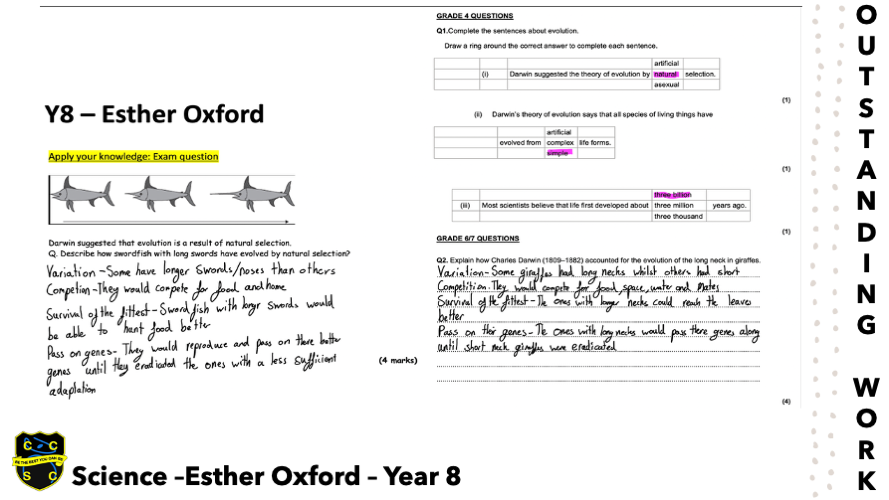 Y8 – Esther Oxford
Apply your knowledge: Exam question
Darwin suggested that evolution is a result of natural selection.
Q. Describe how swordfish with long swords have evolved by natural selection?
Variation -Some have longer swords/noses than others
Competion-They would compete for food and home
Survival of the fittest- Swordfish with longr swords would
be able to hunt food better
Pass on genes- They would reproduce and pass on there better
genes until they eradicated the ones with a less sufficient
adaptation
(4 marks)
GRADE 4 QUESTIONS
Q1.Complete the sentences about evolution.
Draw a ring around the correct answer to complete each sentence.
artificial
(i) Darwin suggested the theory of evolution by natural selection.
asexual
(1)
(ii) Darwin's theory of evolution says that all species of living things have
artificial
evolved from complex life forms.
simple
(1)
three billion
(iii) Most scientists believe that life first developed about three million years ago.
three thousand
(1)
GRADE 6/7 QUESTIONS
Q2. Explain how Charles Darwin (1809–1882) accounted for the evolution of the long neck in giraffes.
Variation- Some giraffes had long necks whilst others had short
Competition- They would compete for food, space, water and mates
Survival of the fittest- The ones with longer necks could reach the leaves
better
Pass on their genes- The ones with long necks would pass there genes along
until short neck giraffes were eradicated
(4)
OUTSTANDING WORK
C C
BE THE BEST YOU CAN BE
S C
Science –Esther Oxford – Year 8